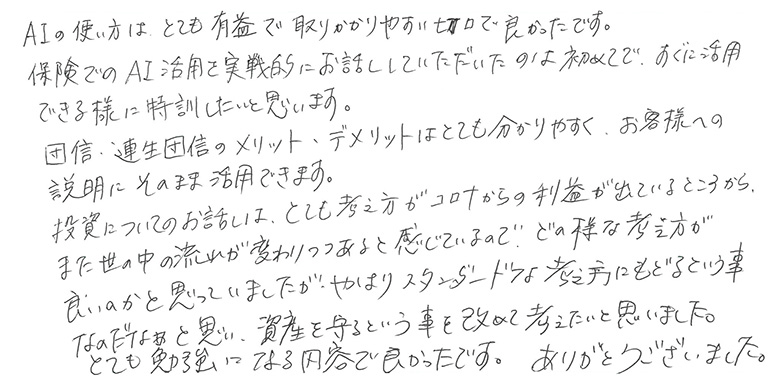 AIの使い方は、とても有益で取りかかりやすい切口で良かったです。
保険でのAI活用を実戦的にお話ししていただいたのは初めてで、すぐに活用
できる様に特訓したいと思います。
団信・連生団信のメリット、デメリットはとても分かりやすく、お客様への
説明にそのまま活用できます。
投資についてのお話しは、とても考え方がコロナからの利益が出ているところから、
また世の中の流れが変わりつつあると感じているので、どの様な考え方が
良いのかと思っていましたが、やはりスタンダードな考え方にもどるという事
なのだなぁと思い、資産を守るという事を改めて考えたいと思いました。
とても勉強になる内容で良かったです。 ありがとうございました。